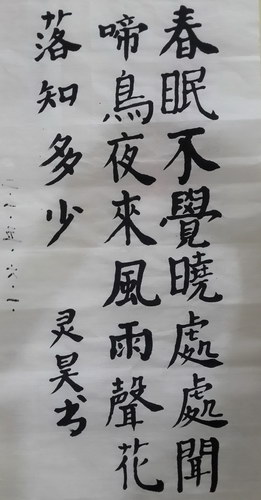 春眠不覺曉處處聞
啼鳥夜來風雨聲花
落知多少
二〇一八·五·六·一·
灵昊书